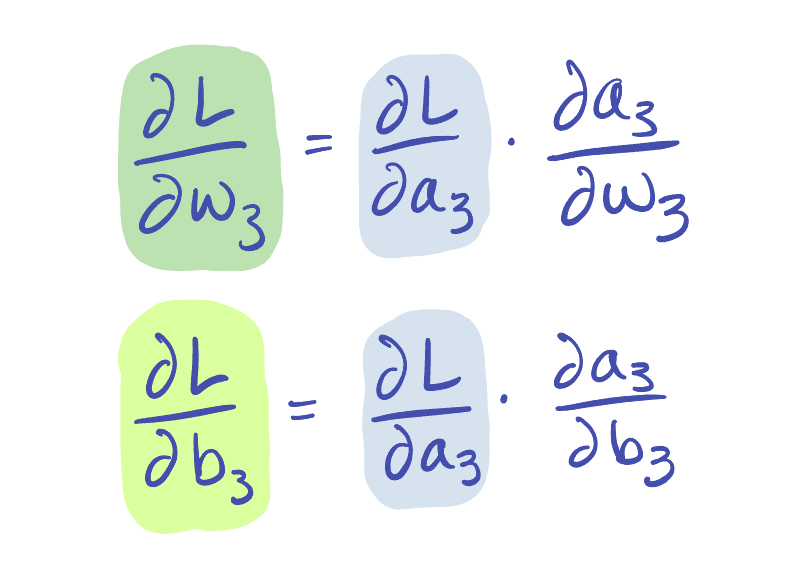 ∂L/∂w₃ = ∂L/∂a₃ · ∂a₃/∂w₃
∂L/∂b₃ = ∂L/∂a₃ · ∂a₃/∂b₃